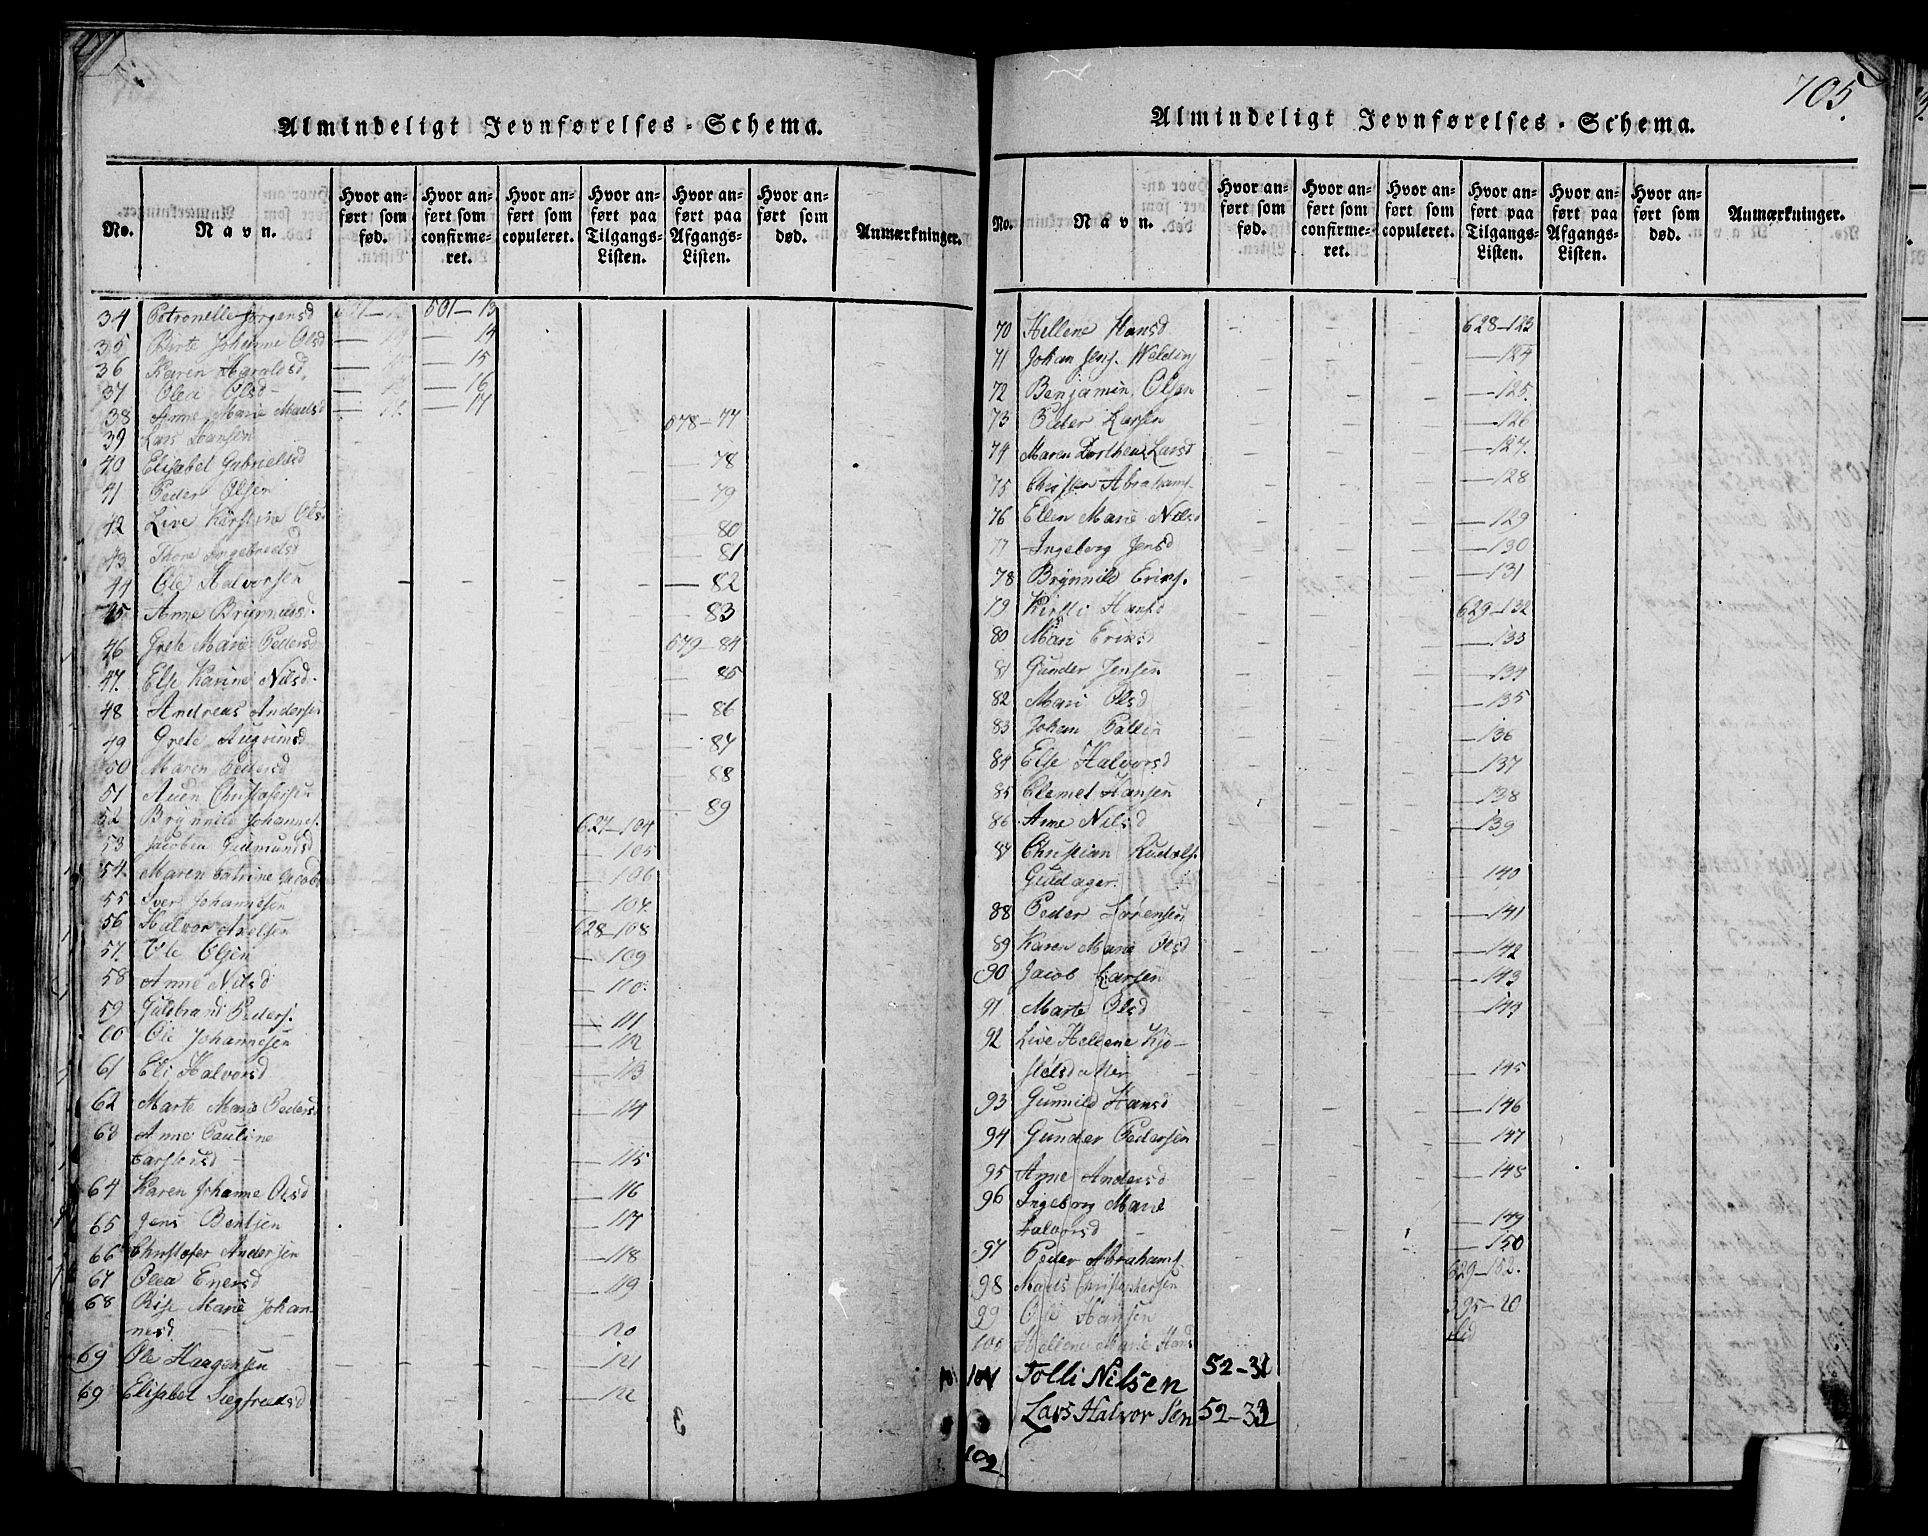 705.
Almindeligt Jevnførelses-Schema.
No. | Navn. | Hvor anført som fød. | Hvor anført som confirmeret. | Hvor anført som copuleret. | Hvor anført paa Tilgangs-Listen. | Hvor anført paa Afgangs-Listen. | Hvor anført som død. | Anmærkninger.
34 Petronelle Jørgensd 501—13
35 Birte Johanne Olsd — 14
36 Karen Haraldsd. — 15
37 Olea Olsd — 16
38 Anne Marie Madsd — 17
39 Lars Hansen 578—77
40 Elisabet Gabrielsd — 78
41 Peder Olsen — 79
42 Live Kirstine Ols. 80
43 Thore Ingebredsd — 81
44 Ole Halvorsen — 82
45 Anne Brynnilds. 83
46 Grete Marie Pedersd 579—84
47. Else Karine Nilsd. — 85
48 Andreas Andersen — 86
49 Grete Augrimsd — 87
50 Maren Pedersd 88
51 Auen Christofersen — 89
52 Brynnild Johannes. 627—104
53 Jacobea Gudmundsd — 105
54. Maren Catrine Jacobs — 106
55 Iver Johannesen — 107.
56 Halvor Axelsen 628—108
57. Ole Olsen — 109
58 Anne Nilsd — 110.
59 Guldbrand Peders. — 111
60 Ole Johannesen — 112
61 Eli Halvorsd — 113
62 Marte Marie Pedersd — 114
63 Anne Pauline
Carstensd — 115
64 Karen Johanne Olsd — 116
65 Jens Bentsen — 117
66 Christofer Andersen — 118
67 Olea Enersd — 119
68 Rise Marie Johan-
nesd — 120
69 Ole Haagensen — 121
69 Elisabet Siegfredsd — 122
Almindeligt Jevnførelses-Schema.
No. | Navn. | Hvor anført som fød. | Hvor anført som confirmeret. | Hvor anført som copuleret. | Hvor anført paa Tilgangs-Listen. | Hvor anført paa Afgangs-Listen. | Hvor anført som død. | Anmærkninger.
70 Hellene Hansd 628—123
71 Johan Jens. Welding — 124
72 Benjamin Olsen — 125.
73 Peder Larsen — 126
74 Maren Dorthea Larsd — 127.
75 Christen Abrahams. — 128
76 Ellen Marie Nilsd — 129
77 Ingeborg Jensd — 130
78 Brynnild Erics. — 131
79 Kirsti Hansd 629—132
80 Mari Ericsd — 133
81 Gunder Jensen — 134
82 Mari Olsd — 135
83 Johan Pallin — 136
84 Else Halvorsd — 137
85 Clemet Hansen — 138
86 Anne Nilsd — 139
87 Christian Rudolf
Gudager. — 140
88 Peder Sørensen — 141
89 Karen Marie Olsd — 142
90 Jacob Larsen — 143
91 Marte Olsd — 144
92 Live Hellene Kjo-
stelsdatter — 145
93 Gunnild Hansd — 146
94 Gunder Pedersen — 147
95 Anne Andersd — 148
96 Ingeborg Marie
Halvorsd — 149
97 Peder Abrahams. — 150
98 Mads Christophersen 629—152.
99 Ole Hansen 395—20
100 Hellene Marie Hansd
101 Tolli Nilsen 52—31
Lars Halvor Sen 52—33
102